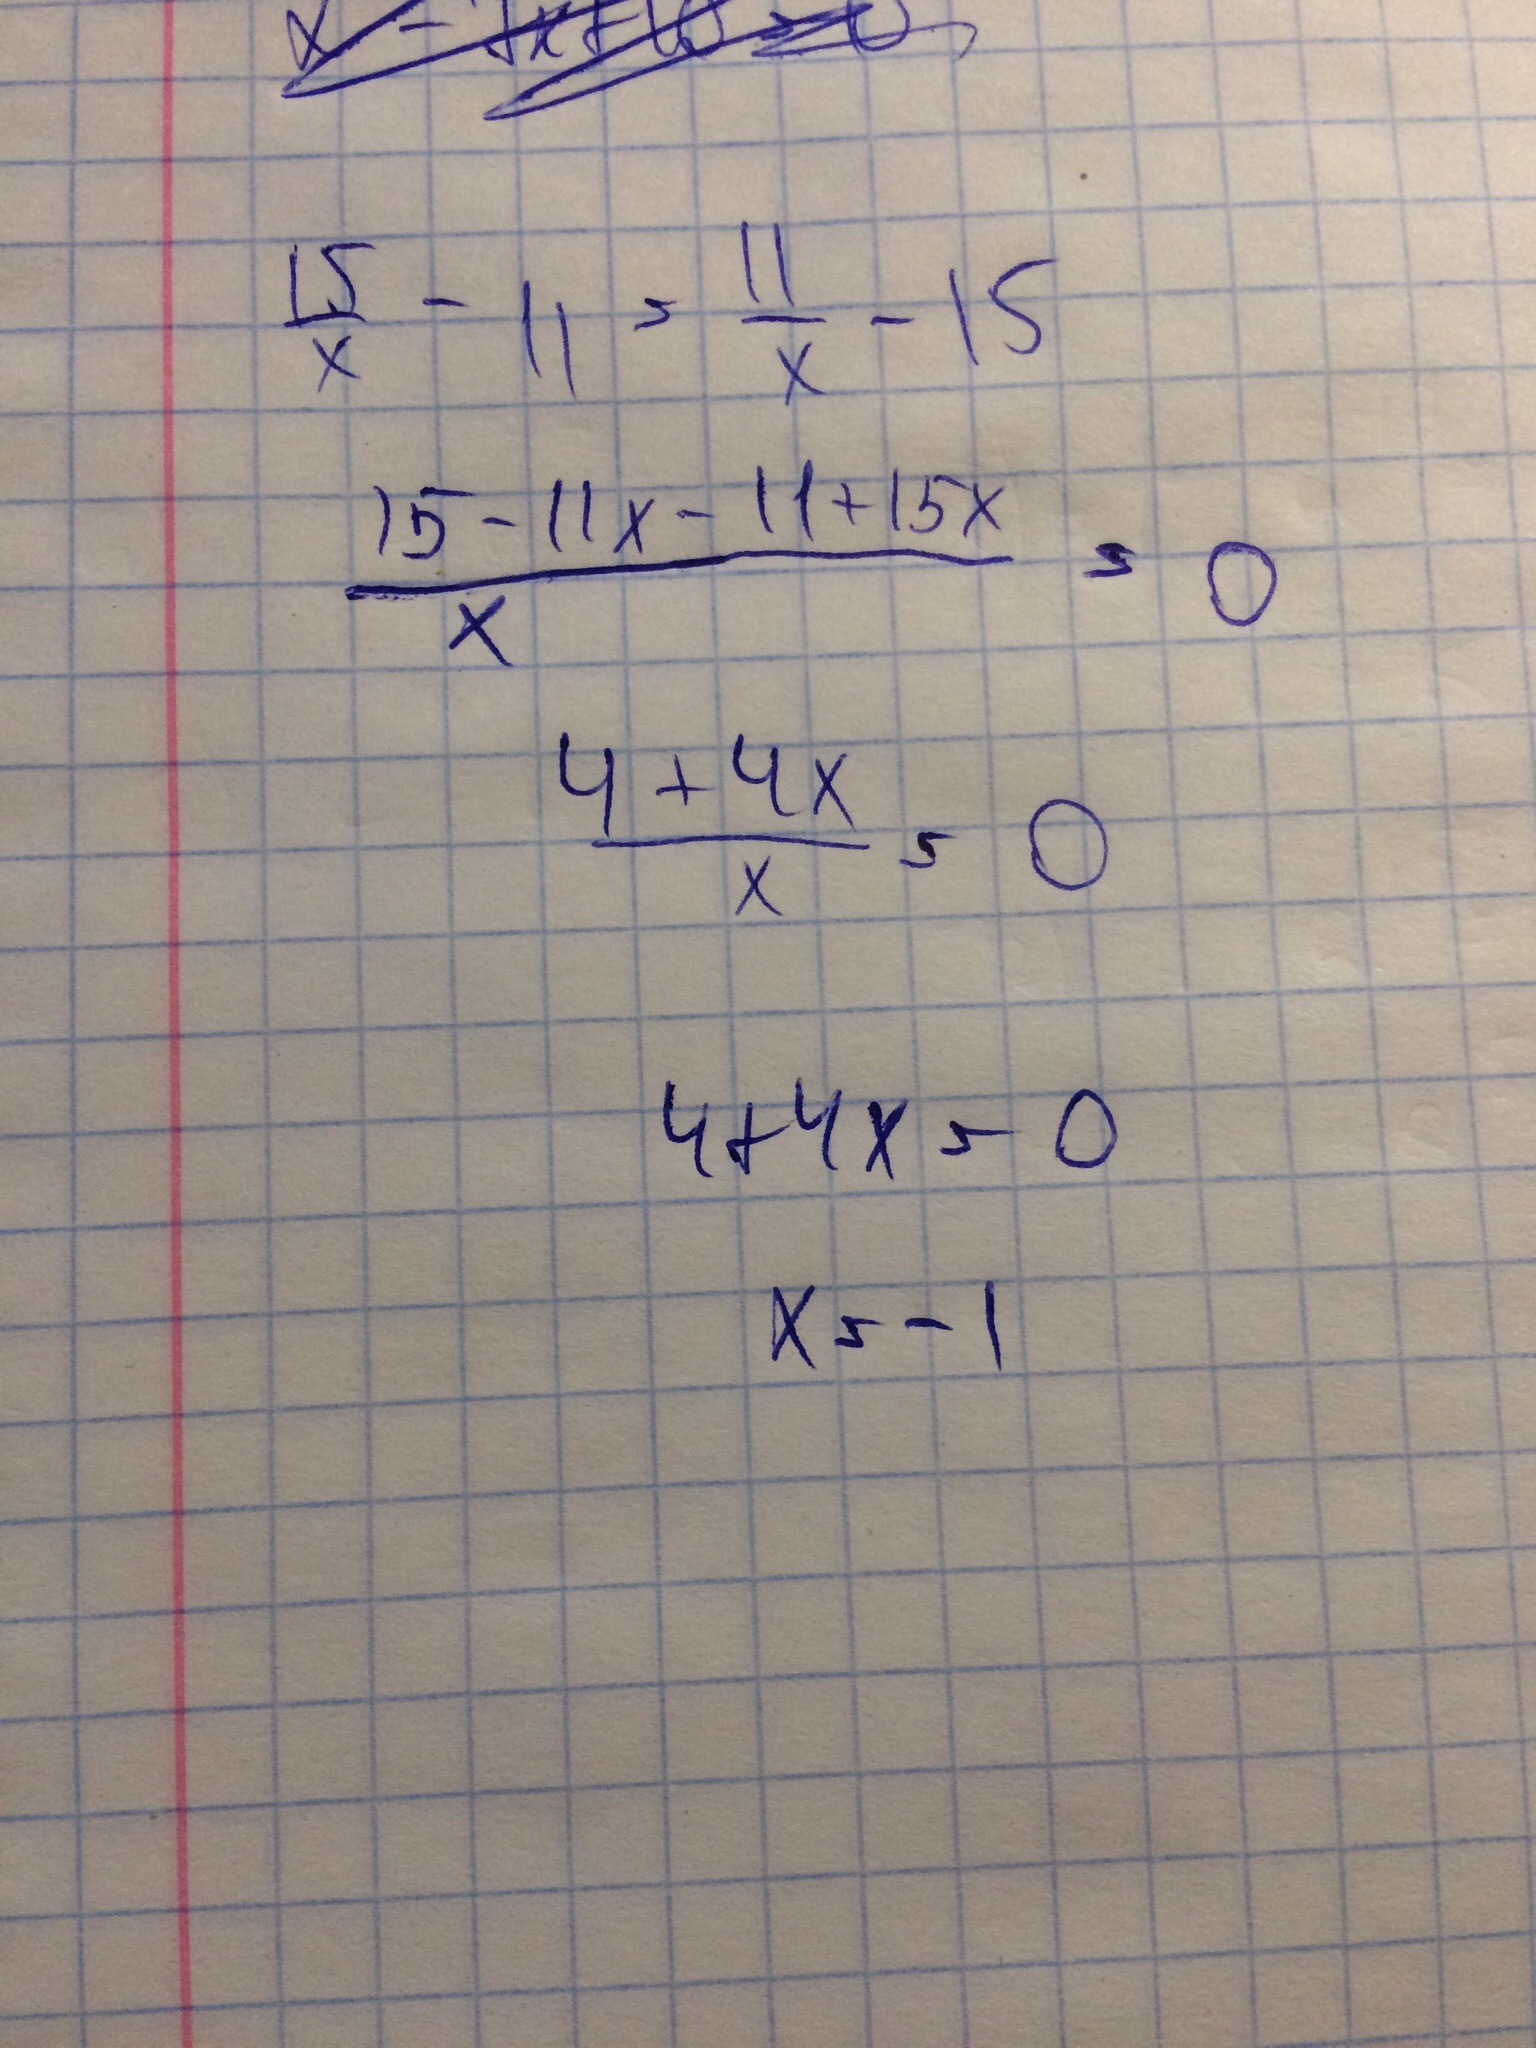 15/x - 11 = 11/x - 15
(15 - 11x - 11 + 15x)/x = 0
(4 + 4x)/x = 0
4 + 4x = 0
x = -1